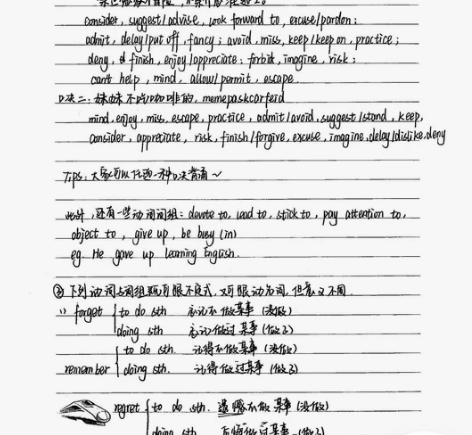 consider, suggest/advise, look forward to, excuse/pardon;
admit, delay/put off, fancy; avoid, miss, keep/keep on, practice;
deny, finish, enjoy/appreciate; forbid, imagine, risk;
can't help, mind, allow/permit, escape.
口诀二: 妹妹不吃咖啡的, memepaskcarfeid
mind, enjoy, miss, escape, practice, admit/avoid, suggest/stand, keep,
consider, appreciate, risk, finish/forgive, excuse, imagine, delay/dislike, deny
Tips: 大家可以任选一种口诀背诵~
此外, 还有一些动词词组: devote to, lead to, stick to, pay attention to,
object to, give up, be busy (in)
eg. He gave up learning English.
下列动词与词组既可跟不定式, 又可跟动名词, 但意义不同
forget to do sth 忘记做某事 (没做)
doing sth 忘记做过某事 (做了)
to do sth. 记得做某事 (没做)
remember doing sth. 记得做过某事 (做了)
regret to do sth. 遗憾做某事 (没做)
doing sth. 后悔做过某事 (做了)